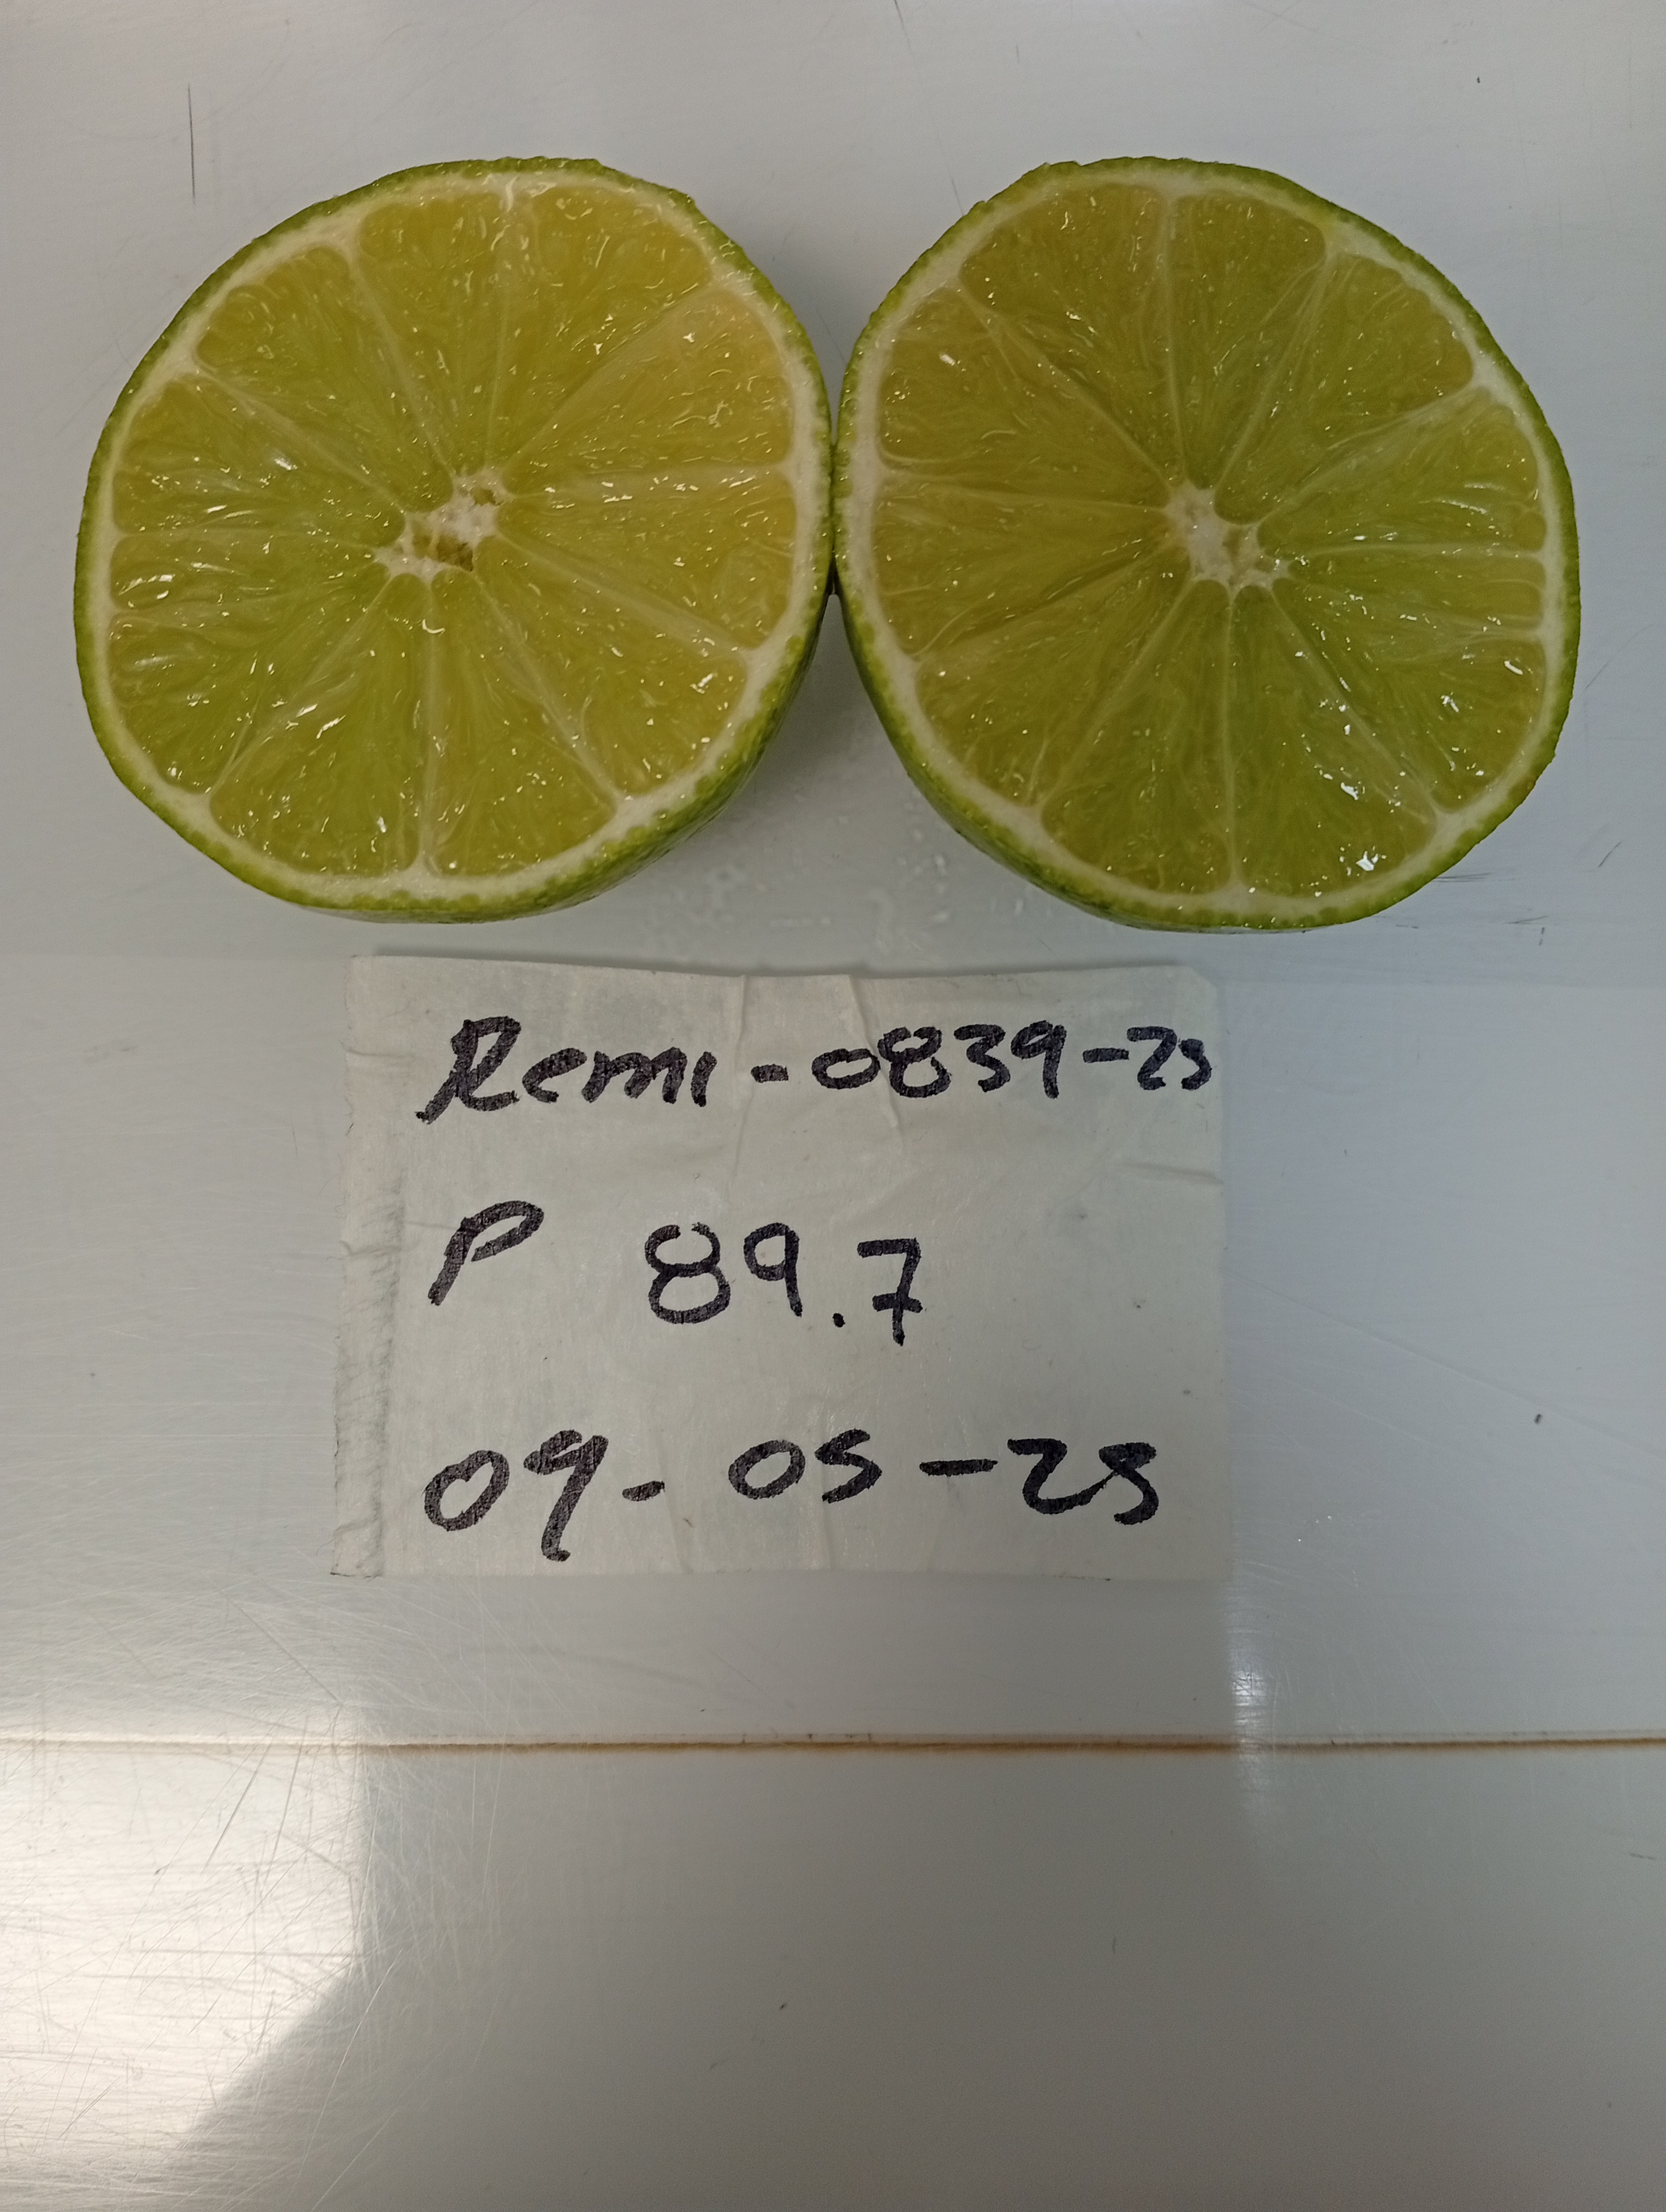 Remi-0839-25
P 89.7
09-05-25